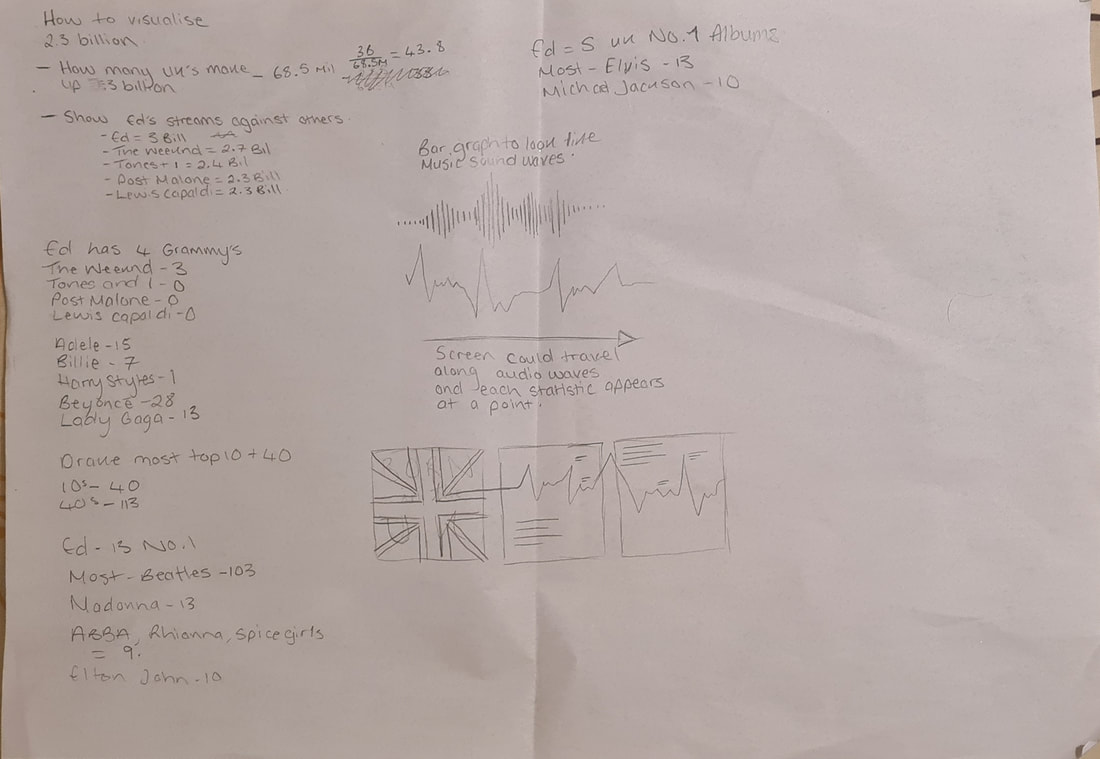 How to visualise
2.3 billion.
- How many UK's make - 68.5 Mil
up 3 billion
36
68.5M
= 43.8
- Show Ed's streams against others.
- Ed = 3 Bill
- The weeknd = 2.7 Bil
- Tones + 1 = 2.4 Bil
- Post Malone = 2.3 Bill
- Lewis Capaldi = 2.3 Bill
Ed has 4 Grammy's
The Weeknd - 3
Tones and I - 0
Post Malone - 0
Lewis capaldi - 0
Adele - 15
Billie - 7
Harry Styles - 1
Beyoncé - 28
Lady Gaga - 13
Drake most top 10 + 40
10s - 40
40s - 113
Ed - 13 No.1
Most - Beatles - 103
Madonna - 13
ABBA, Rhianna, Spice girls
= 9.
Elton John - 10
Ed = 5 UK No.1 Albums
Most - Elvis - 13
Michael Jackson - 10
Bar graph to look like
Music sound waves.
Screen could travel
along audio waves
and each statistic appears
at a point.